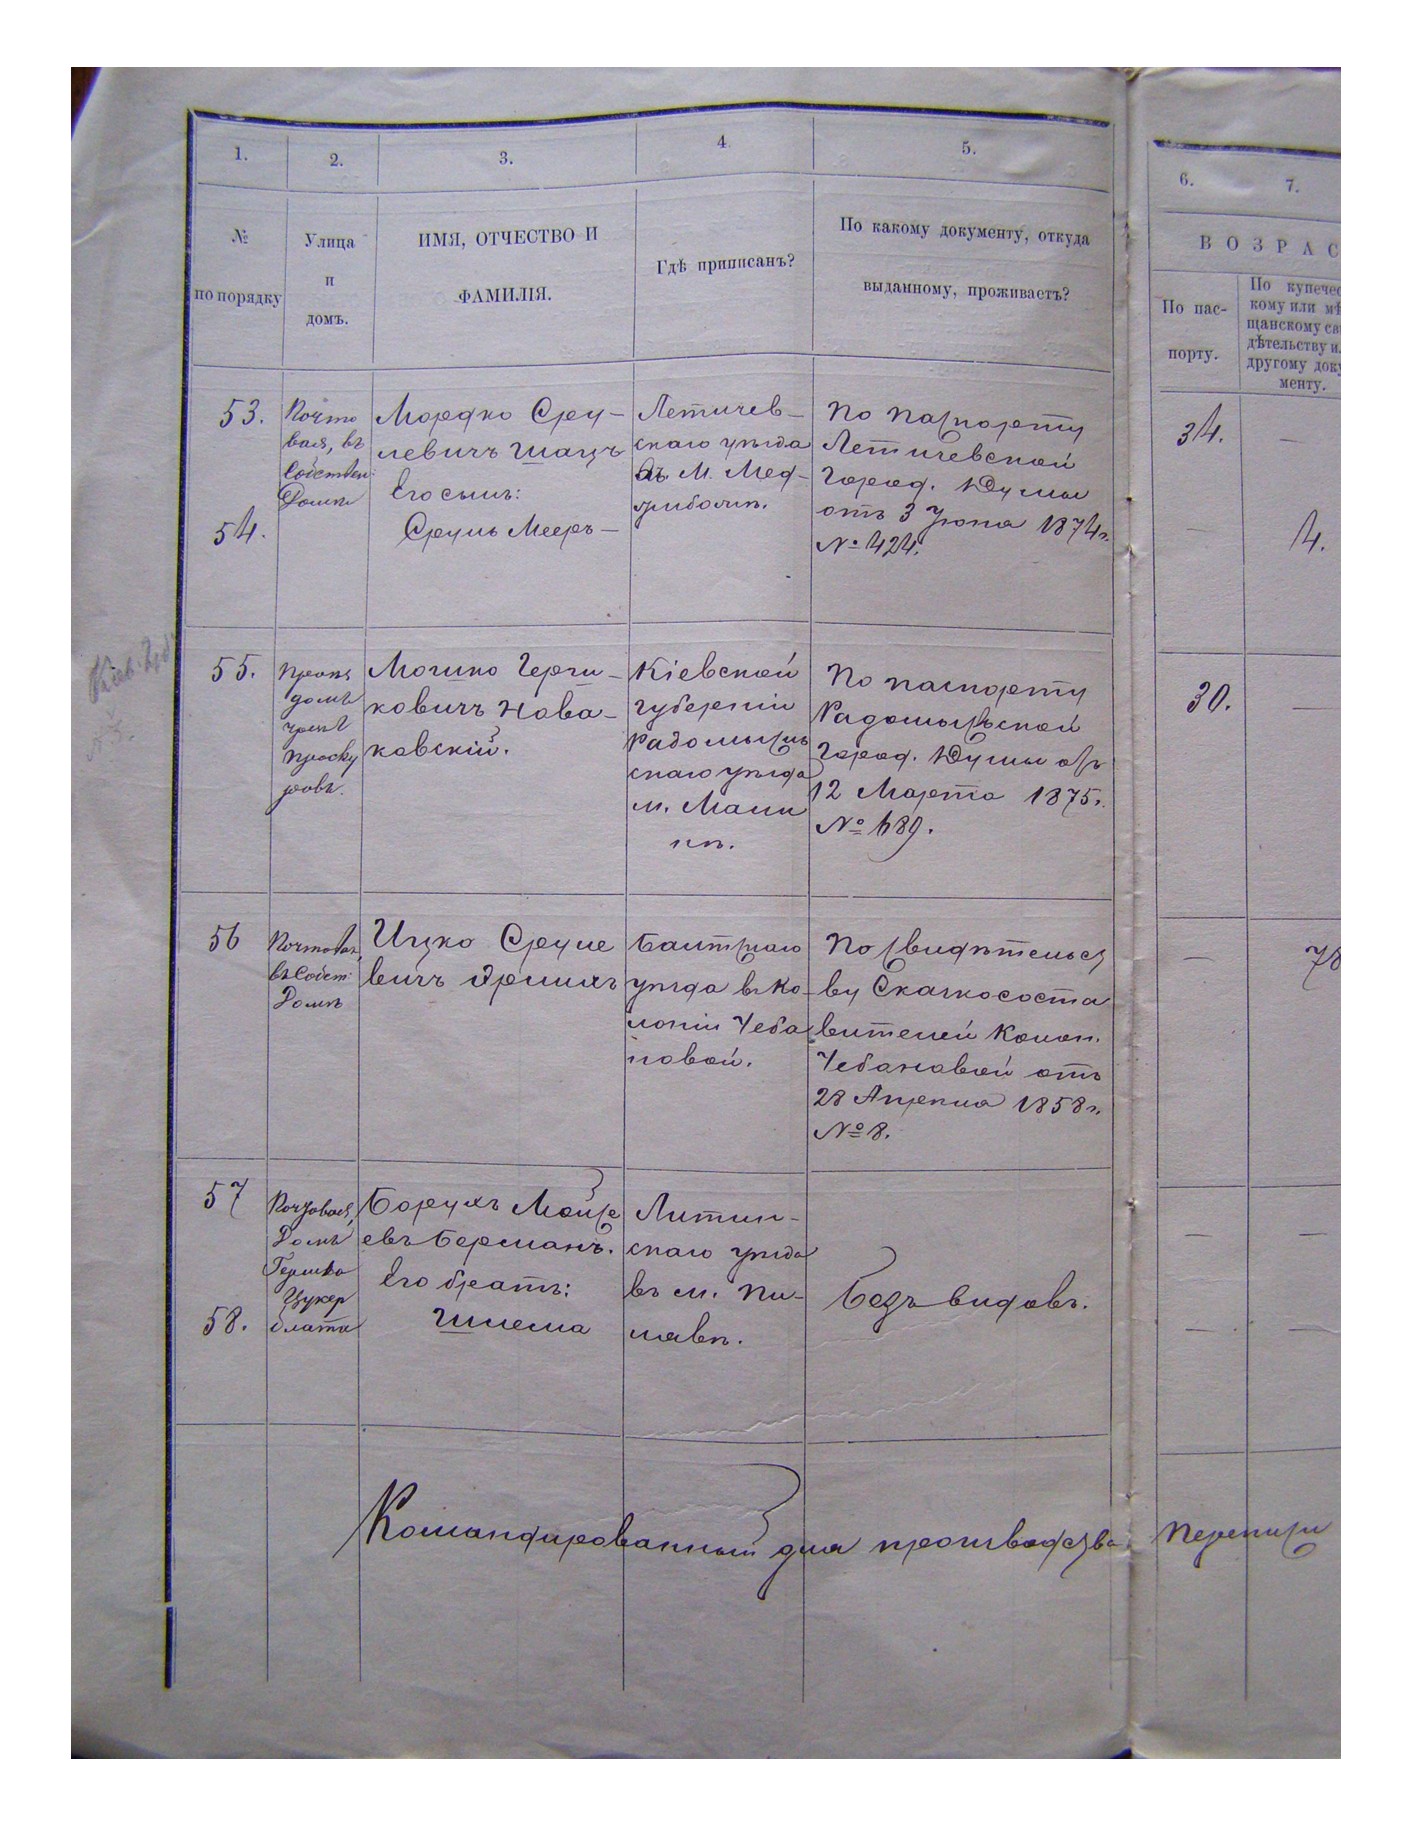 1.
2.
3.
4.
5.
6.
7.
№
по порядку
Улица
и
домъ.
ИМЯ, ОТЧЕСТВО И
ФАМИЛІЯ.
Гдѣ приписанъ?
По какому документу, откуда
выданному, проживаетъ?
ВОЗРАС
По пас-
порту.
По купечес
кому или мѣ
щанскому сви
дѣтельству ил
другому доку
менту.
53.
Почто
вая, въ
Собствен.
Домѣ
Мордко Сру-
левичъ Шацъ
Его сынъ:
54.
Сруль Мееръ-
Летичев-
скаго уѣзда
въ м. Мед-
жибожѣ.
По паспорту
Летичевской
Город. Думы
отъ 3 Іюня 1874 г.
№ 424.
34.
—
—
4.
55.
домъ
Проску
ровъ.
Мошко Герш-
ковичъ Нова-
ковскій.
Кіевской
губерніи
Радомысль
скаго уѣзда
м. Мали
нѣ.
По паспорту
Радомысльской
Город. Думы отъ
12 Марта 1875 г.
№ 689.
30.
—
56
Почтовая,
въ Собст.
Домѣ
Ицко Сруле
вичъ Эрлихъ
Балтскаго
уѣзда въ Ко-
лоніи Чеба
новой.
По свидѣтельст
ву Сказкососта
вителей Колон.
Чебановой отъ
28 Апрѣля 1858 г.
№ 8.
—
78
57
Почтовая,
Домъ
Гершка
Цукер
блата
Борухъ Мошк
евъ Берманъ.
Его братъ:
58.
Шлема
Литин-
скаго уѣзда
въ м. Пи-
лявѣ.
Безъ видовъ.
—
—
—
—
Командированный для производства переписи